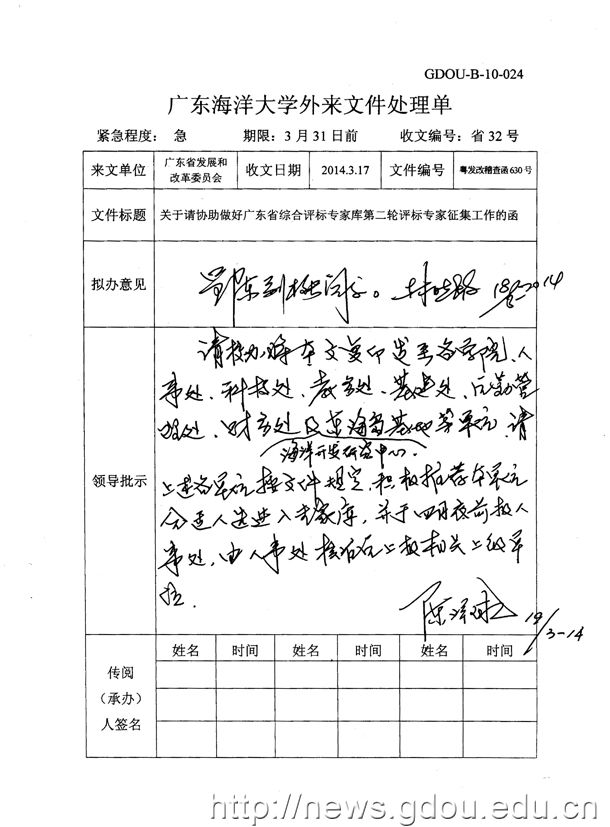 GDOU-B-10-024
广东海洋大学外来文件处理单
紧急程度： 急 期限：3月31日前 收文编号：省32号
来文单位 广东省发展和改革委员会 收文日期 2014.3.17 文件编号 粤发改稽查函630号
文件标题 关于请协助做好广东省综合评标专家库第二轮评标专家征集工作的函
拟办意见
领导批示
请校办将本文复印送至各学院、人
事处、科技处、教务处、基建处、后勤管
理处、财务处及东海岛基地等单元，请
海洋开发研究中心
上述各单元按文件规定，积极推荐本单元
合适人选进入专家库，并于四月底前报人
事处，由人事处核后上报相关上级单
位。
19/3-14
姓名 时间 姓名 时间 姓名 时间
传阅
（承办）
人签名
http://news.gdou.edu.cn